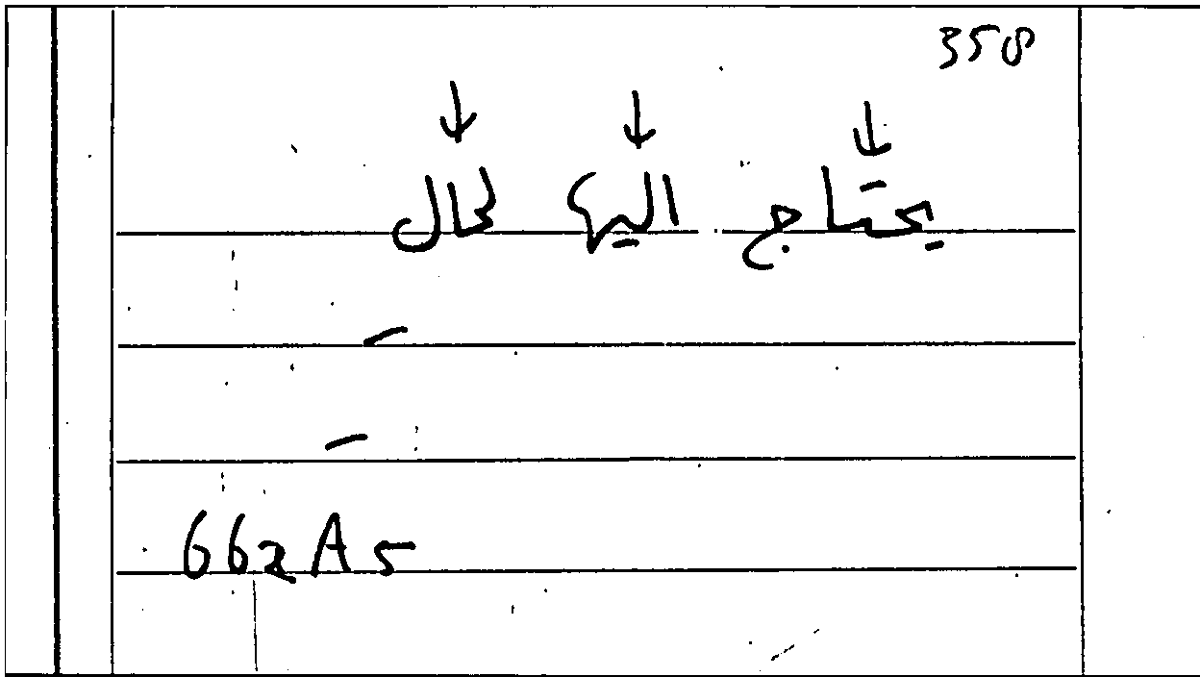 358
يحتاج اليها
662A5